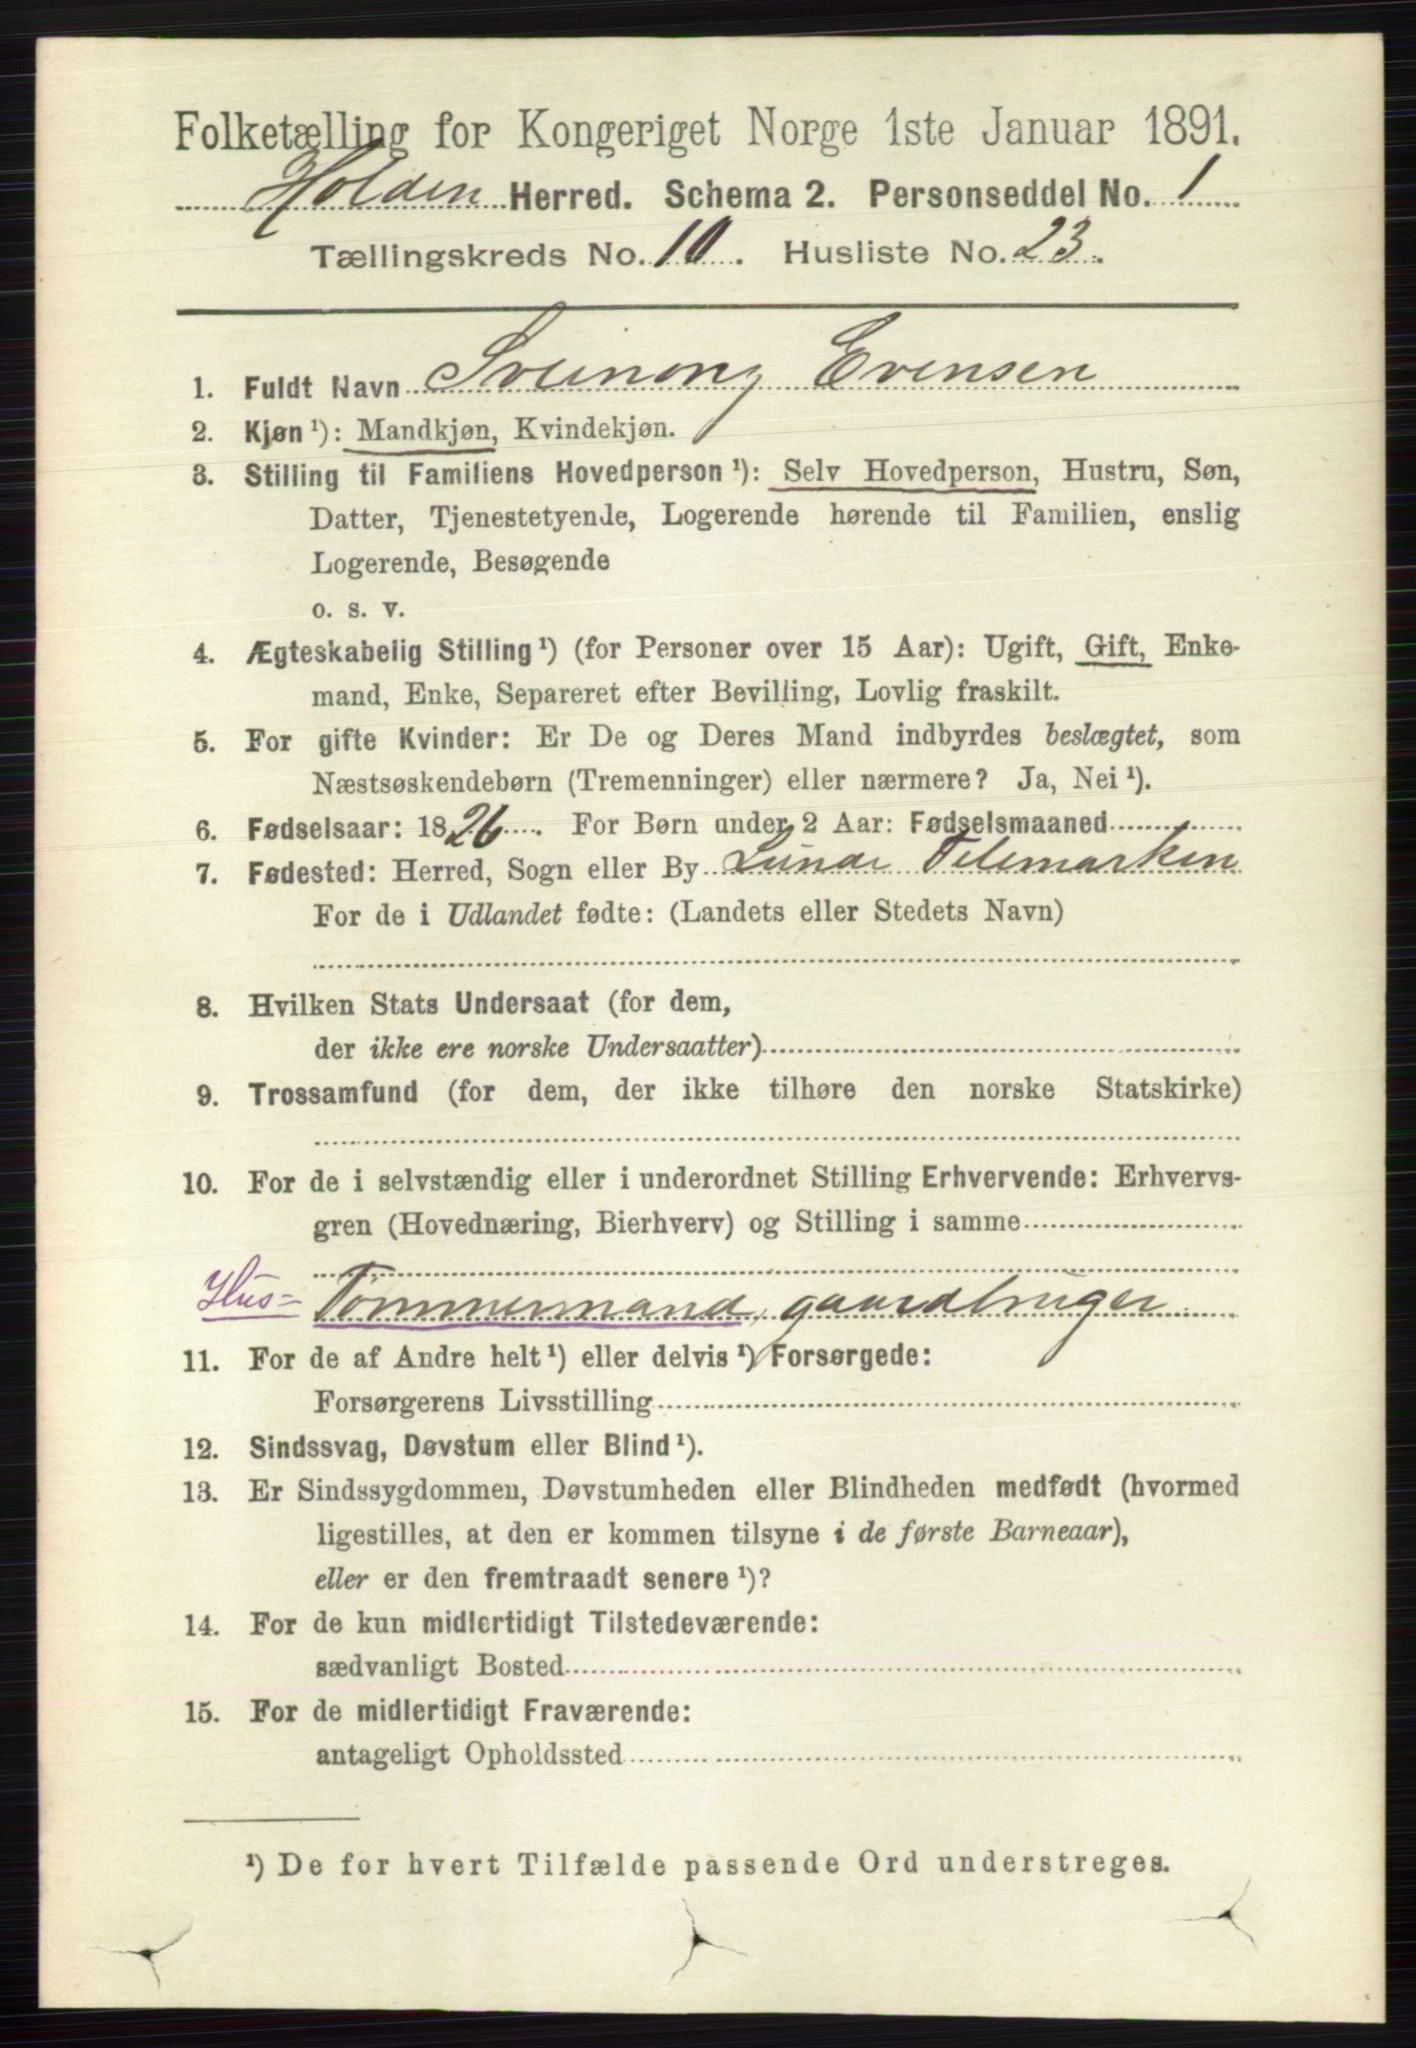 Folketælling for Kongeriget Norge 1ste Januar 1891.
Holden Herred. Schema 2. Personseddel No. 1
Tællingskreds No. 10. Husliste No. 23.
1. Fuldt Navn Sveinong Evensen
2. Kjøn¹): Mandkjøn, Kvindekjøn.
3. Stilling til Familiens Hovedperson¹): Selv Hovedperson, Hustru, Søn,
Datter, Tjenestetyende, Logerende hørende til Familien, enslig
Logerende, Besøgende
o. s. v.
4. Ægteskabelig Stilling¹) (for Personer over 15 Aar): Ugift, Gift, Enke-
mand, Enke, Separeret efter Bevilling, Lovlig fraskilt.
5. For gifte Kvinder: Er De og Deres Mand indbyrdes beslægtet, som
Næstsøskendebørn (Tremenninger) eller nærmere? Ja, Nei¹).
6. Fødselsaar: 1826. For Børn under 2 Aar: Fødselsmaaned
7. Fødested: Herred, Sogn eller By Lunde Telemarken
For de i Udlandet fødte: (Landets eller Stedets Navn)
8. Hvilken Stats Undersaat (for dem,
der ikke ere norske Undersaatter)
9. Trossamfund (for dem, der ikke tilhøre den norske Statskirke)
10. For de i selvstændig eller i underordnet Stilling Erhvervende: Erhvervs-
gren (Hovednæring, Bierhverv) og Stilling i samme
Hus- Tømmermand, gaardbruger
11. For de af Andre helt¹) eller delvis¹) Forsørgede:
Forsørgerens Livsstilling
12. Sindssvag, Døvstum eller Blind¹).
13. Er Sindssygdommen, Døvstumheden eller Blindheden medfødt (hvormed
ligestilles, at den er kommen tilsyne i de første Barneaar),
eller er den fremtraadt senere¹)?
14. For de kun midlertidigt Tilstedeværende:
sædvanligt Bosted
15. For de midlertidigt Fraværende:
antageligt Opholdssted
¹) De for hvert Tilfælde passende Ord understreges.